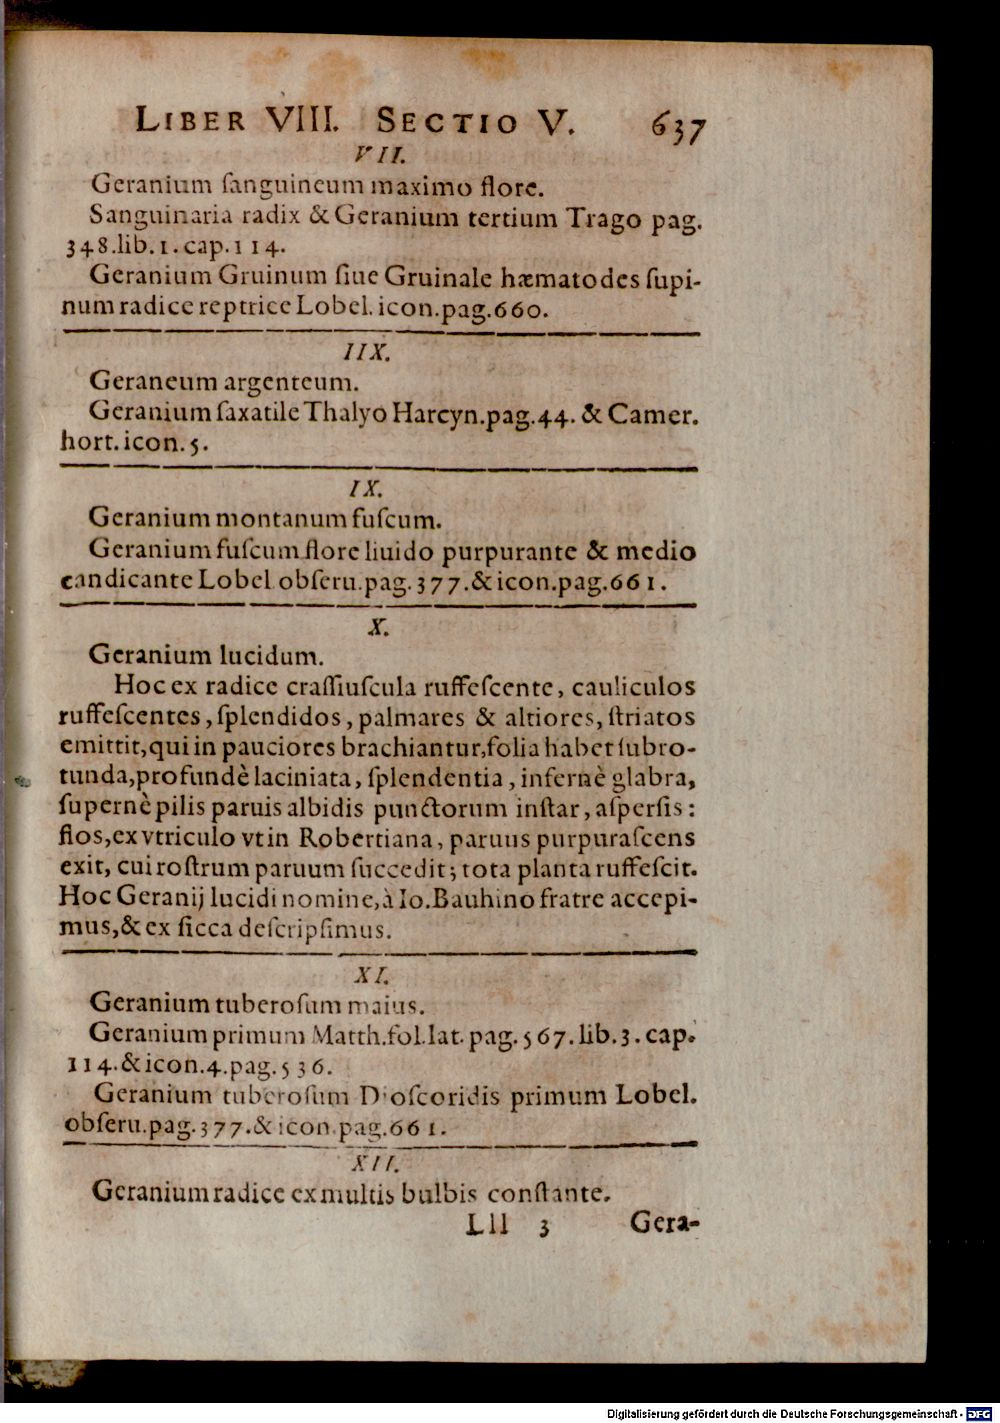 LIBER VIII. SECTIO V. 637
VII.
Geranium ſanguineum maximo flore.
Sanguinaria radix & Geranium tertium Trago pag.
348.lib.1.cap.114.
Geranium Gruinum ſiue Gruinale hæmatodes ſupi-
num radice reptrice Lobel. icon.pag.660.
IIX.
Geraneum argenteum.
Geranium ſaxatile Thalyo Harcyn.pag.44. & Camer.
hort.icon.5.
IX.
Geranium montanum fuſcum.
Geranium fuſcum flore liuido purpurante & medio
candicante Lobel obſeru.pag.377.& icon.pag.661.
X.
Geranium lucidum.
Hoc ex radice craſſiuſcula ruffeſcente, cauliculos
ruffeſcentes, ſplendidos, palmares & altiores, ſtriatos
emittit, qui in pauciores brachiantur, folia habet ſubro-
tunda, profundè laciniata, ſplendentia, infernè glabra,
ſupernè pilis paruis albidis punctorum inſtar, aſperſis:
flos, ex vtriculo vt in Robertiana, paruus purpuraſcens
exit, cui roſtrum paruum ſuccedit; tota planta ruffeſcit.
Hoc Geranij lucidi nomine, à Io. Bauhino fratre accepi-
mus, & ex ſicca deſcripſimus.
XI.
Geranium tuberoſum maius.
Geranium primum Matth.fol.lat.pag.567.lib.3.cap.
114.& icon.4.pag.536.
Geranium tuberoſum Dioſcoridis primum Lobel.
obſeru.pag.377.& icon.pag.661.
XII.
Geranium radice ex multis bulbis conſtante.
Lll 3 Gera-
Digitalisierung gefördert durch die Deutsche Forschungsgemeinschaft - DFG